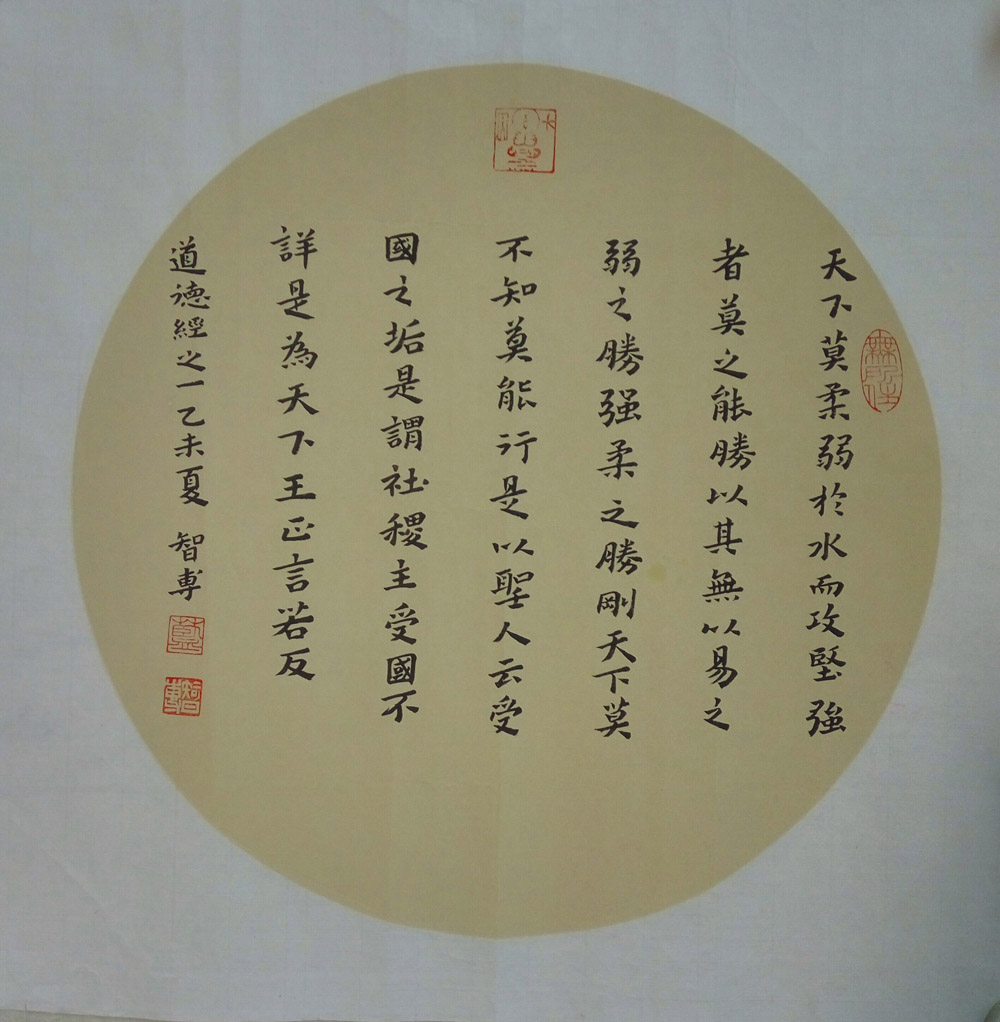 天下莫柔弱於水而攻堅強
者莫之能勝以其無以易之
弱之勝强柔之勝剛天下莫
不知莫能行是以聖人云受
國之垢是謂社稷主受國不
詳是為天下王正言若反
道德經之一乙未夏 智專
無所住
智專